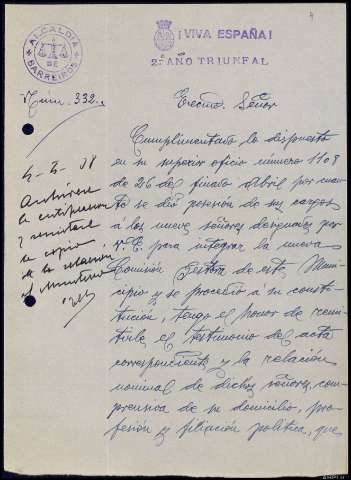 4
ALCALDIA DE BARREIROS
¡VIVA ESPAÑA!
2º AÑO TRIUNFAL
Núm. 332.
Excmo. Señor
Cumplimentado lo dispuesto
en su superior oficio número 1108
de 26 de finado Abril por cuan
to se dió posesión de sus cargos
á los nueve señores designados por
V.E. para integrar la nueva
Comisión Gestora de este Muni
cipio y se procedió á su consti
tución, tengo el honor de remi
tirle el testimonio de acta
correspondiente y la relación
nominal de dichos señores, com
prensiva de su domicilio, pro
fesión y filiación política, que
38
y remitase
la copia
de la relación
al Ministerio